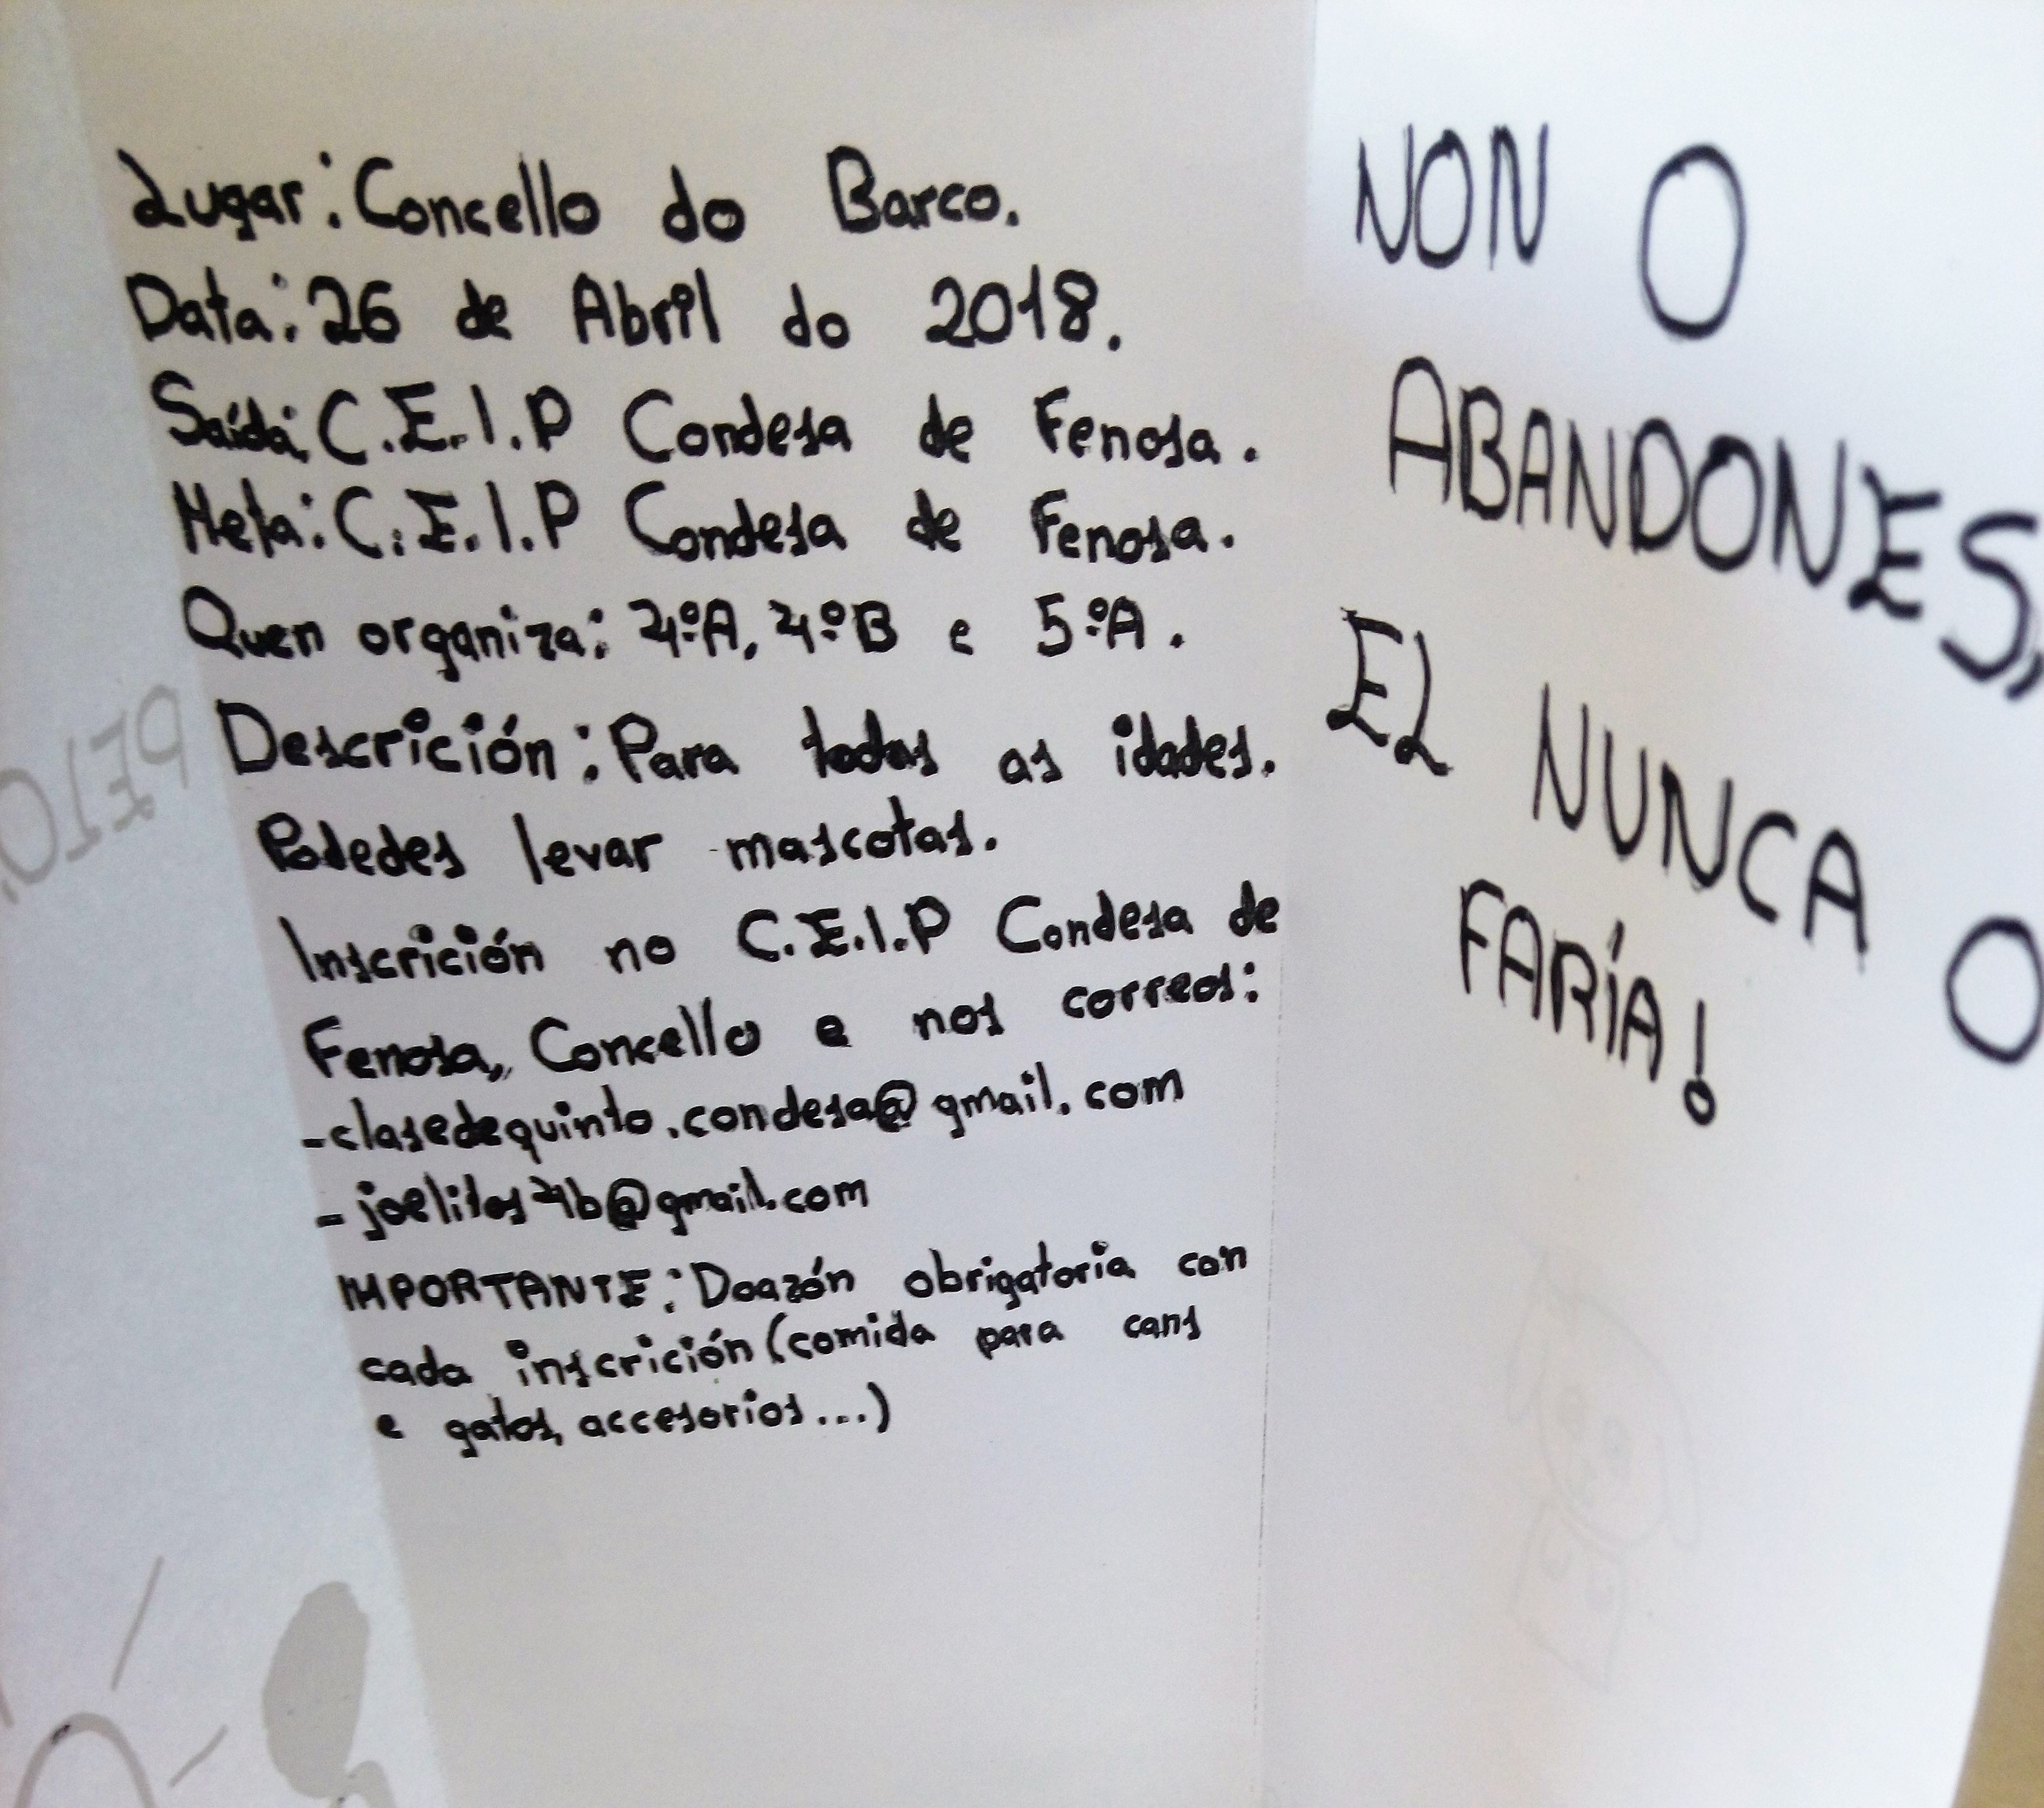 Lugar: Concello do Barco.
Data: 26 de Abril do 2018.
Saída: C.E.I.P Condesa de Fenosa.
Meta: C.E.I.P Condesa de Fenosa.
Quen organiza: 4ºA, 4ºB e 5ºA.
Descrición: Para todas as idades.
Podedes levar mascotas.
Inscrición no C.E.I.P Condesa de
Fenosa, Concello e nos correos:
-clasedequinto.condesa@gmail.com
-joelitos4b@gmail.com
IMPORTANTE: Doazón obrigatoria con
cada inscrición (comida para cans
e gatos, accesorios...)
NON O
ABANDONES,
EL NUNCA O
FARÍA!